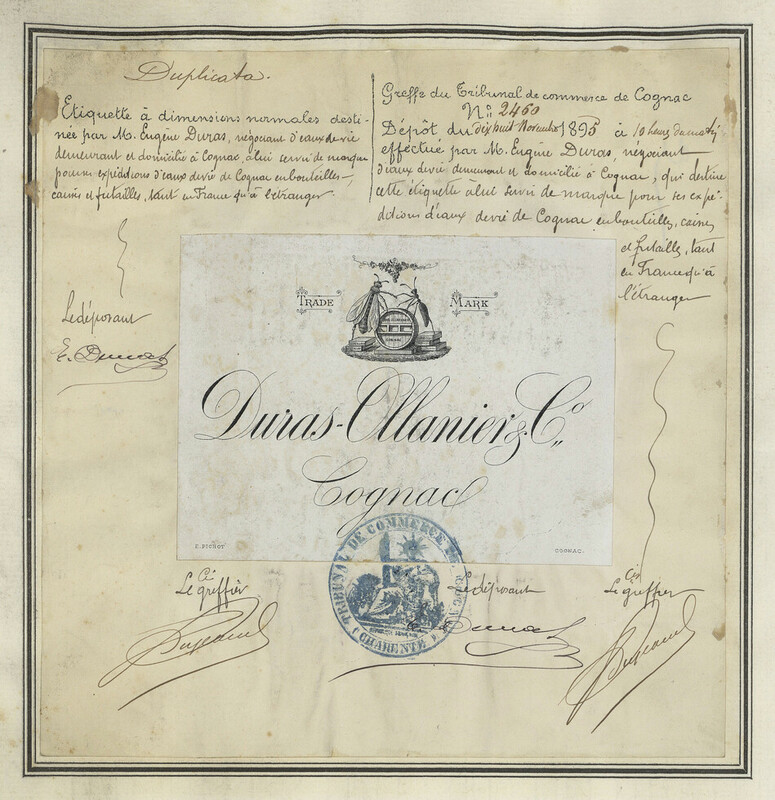 Duplicata.
Etiquette à dimensions normales desti-
née par M. Eugène Duras, négociant d'eaux de vie
demeurant et domicilié à Cognac, à lui servir de marque
pour ses expéditions d'eaux de vie de Cognac en bouteilles,
caisses et futailles, tant en France qu'à l'étranger.
Le déposant
E. Duras
Greffe du Tribunal de commerce de Cognac
N° 2460
Dépôt du dix huit Novembre 1895 à 10 heures du matin
effectué par M. Eugène Duras, négociant
d'eaux de vie, demeurant et domicilié à Cognac, qui destine
cette étiquette à lui servir de marque pour ses expé-
ditions d'eaux de vie de Cognac en bouteilles, caisses
et futailles, tant
en France qu'à
l'étranger
TRADE MARK
COGNAC
Duras-Ollanier & Co
Cognac
E. PICHOT
COGNAC.
TRIBUNAL DE COMMERCE DE COGNAC
RÉPUBLIQUE FRANÇAISE
( CHARENTE )
Le greffier
Le déposant
E. Duras
Le greffier